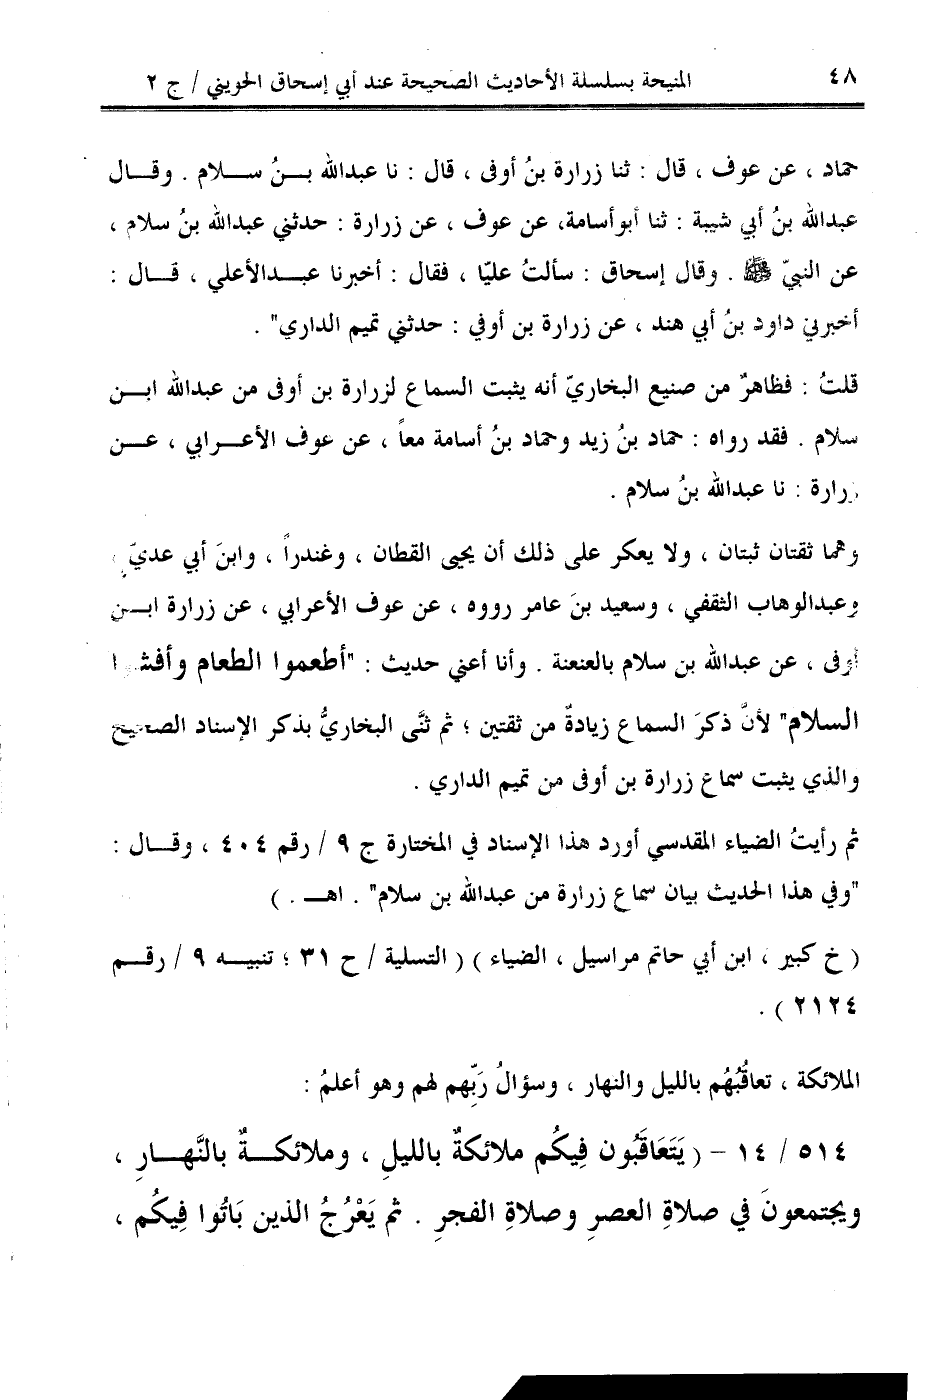 ٤٨
المنيحة بسلسلة الأحاديث الصحيحة عند أبي إسحاق الحويني / ج ٢
حماد ، عن عوف ، قال : ثنا زرارة بنُ أوفى ، قال : نا عبدالله بـنُ سـلام . وقـال
عبدالله بنُ أبي شيبة : ثنا أبو أسامة، عن عوف ، عن زرارة : حدثني عبدالله بنُ سلام ،
عن النبيّ ﷺ . وقال إسحاق : سألتُ عليّا ، فقال : أخبرنا عبـدالأعلي ، قـال :
أخبرني داود بنُ أبي هند ، عن زرارة بن أوفي : حدثني تميم الداري" .
قلتُ : فظاهرٌ من صنيع البخاريّ أنه يثبت السماع لزرارة بن أوفى من عبدالله ابـن
سلام . فقد رواه : حماد بنُ زيد وحماد بنُ أسامة معاً ، عن عوف الأعـرابي ، عـن
زرارة : نا عبدالله بنُ سلام .
وهما ثقتان ثبتان ، ولا يعكر على ذلك أن يحيى القطان ، وغندراً ، وابنَ أبي عديّ ،
وعبدالوهاب الثقفي ، وسعيد بنَ عامر رووه ، عن عوف الأعرابي ، عن زرارة ابـن
أوفى ، عن عبدالله بن سلام بالعنعنة . وأنا أعني حديث : "أطعموا الطعام وأفشوا
السلام" لأنَّ ذكرَ السماع زيادةٌ من ثقتين ؛ ثم ثنَّى البخاريُّ بذكر الإسناد الصحيح
والذي يثبت سماع زرارة بن أوفى من تميم الداري .
ثم رأيتُ الضياء المقدسي أورد هذا الإسناد في المختارة ج ٩ / رقم ٤٠٤ ، وقـال :
"وفي هذا الحديث بيان سماع زرارة من عبدالله بن سلام" . اهـ . )
( خ كبير ، ابن أبي حاتم مراسيل ، الضياء ) ( التسلية / ح ٣١ ؛ تنبيـه ٩ / رقـم
٢١٢٤ ) .
الملائكة ، تعاقُبُهُم بالليل والنهار ، وسؤالُ ربِّهم لهم وهو أعلمُ :
٥١٤ / ١٤ – ( يَتَعَاقَبُون فِيكُم ملائكةٌ بالليلِ ، وملائكـةٌ بالنَّهارِ ،
ويجتمعونَ في صلاةِ العصرِ وصلاةِ الفجرِ . ثم يَعْرُجُ الذين بَاتُوا فِيكُم ،